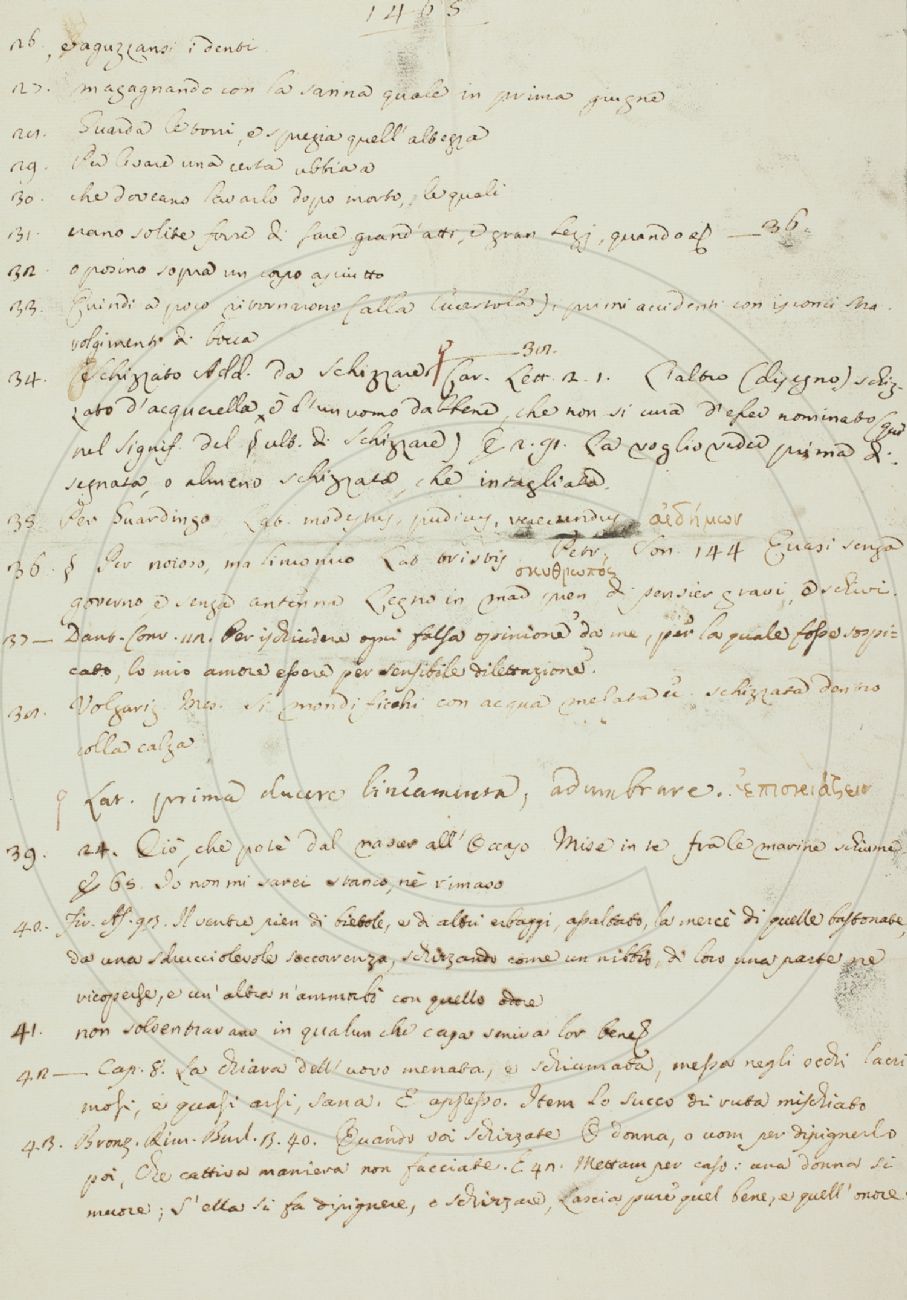 1465
26. , e aguzzansi i denti
27. magagnando con la sanna quale in prima giugne
28. Guarda le torri, e spregia quell' altezza
29. Per levare una certa ubbia a
30. che doveano lavarlo dopo morto, le quali
31. erano solite forse di fare grand' atti, e gran lezj, quando — 36.
32. o posino sopra un capo asciutto
33. Quindi a poco ritornarono (alla lucertola) i primi accidenti con isconci stra-
volgimenti di bocca
34. Schizzato Add. da Schizzare — 38.
Car. Lett. 2. 1. L'altro (disegno) schiz-
zato d'acquerella, è d'un uomo dabbene, che non si cura d'esser nominato (qui
nel signif. del § ult. di Schizzare) E 2. 91. La voglio veder prima di-
segnata, o almeno schizzata, che intagliata.
35. Per Guardingo Lat. modestus, pudicus, verecundus αἰδήμων
36. § Per noioso, malinconico Lat. tristis σκυθρωπός Petr. Son. 144 Quasi senza
governo e senza antenna Legno in mar pien di pensier gravi, e schivi.
37 — Dant. Conv. 48. Per ischiudere ogni falsa opinione da me, per la quale fosse sospi-
cato, lo mio amore essere per sensibile dilettazione.
38. Volgariz. Mes. Si mondifichi con acqua melata schizzata dentro
colla calza
Lat. prima ducere lineamenta, adumbrare. ἐπισκιάζειν
39. 24. Ciò, che potè dal nascer all' Occaso Mise in te fra le marine schiume
E 65. Io non mi sarei stanco, nè rimaso
40. Fir. As. 93. Il ventre pien di bietole, e di altri erbaggi, assaltato, la mercè di quelle bastonate,
da una sdrucciolevole soccorrenza, schizzando come un nibbio, di loro una parte ne
ricoperse, e un' altra n'ammorbò con quello odore
41. non sol entravano in qualunche casa veniva lor bene
42 — Cap. 8. La chiara dell' uovo menata, e schiumata, messa negli occhi lacri-
mosi, e quasi arsi, sana. E appresso. Item lo succo di ruta mischiato
43. Bronz. Rim. Burl. 3. 40. Quando voi schizzate O donna, o uom per dipignerlo
poi, Che cattiva maniera non facciate. E 42. Mettiam per caso: una donna si
muore; S'ella si fa dipignere, o schizzare, Lascia pure quel bene, e quell' onore